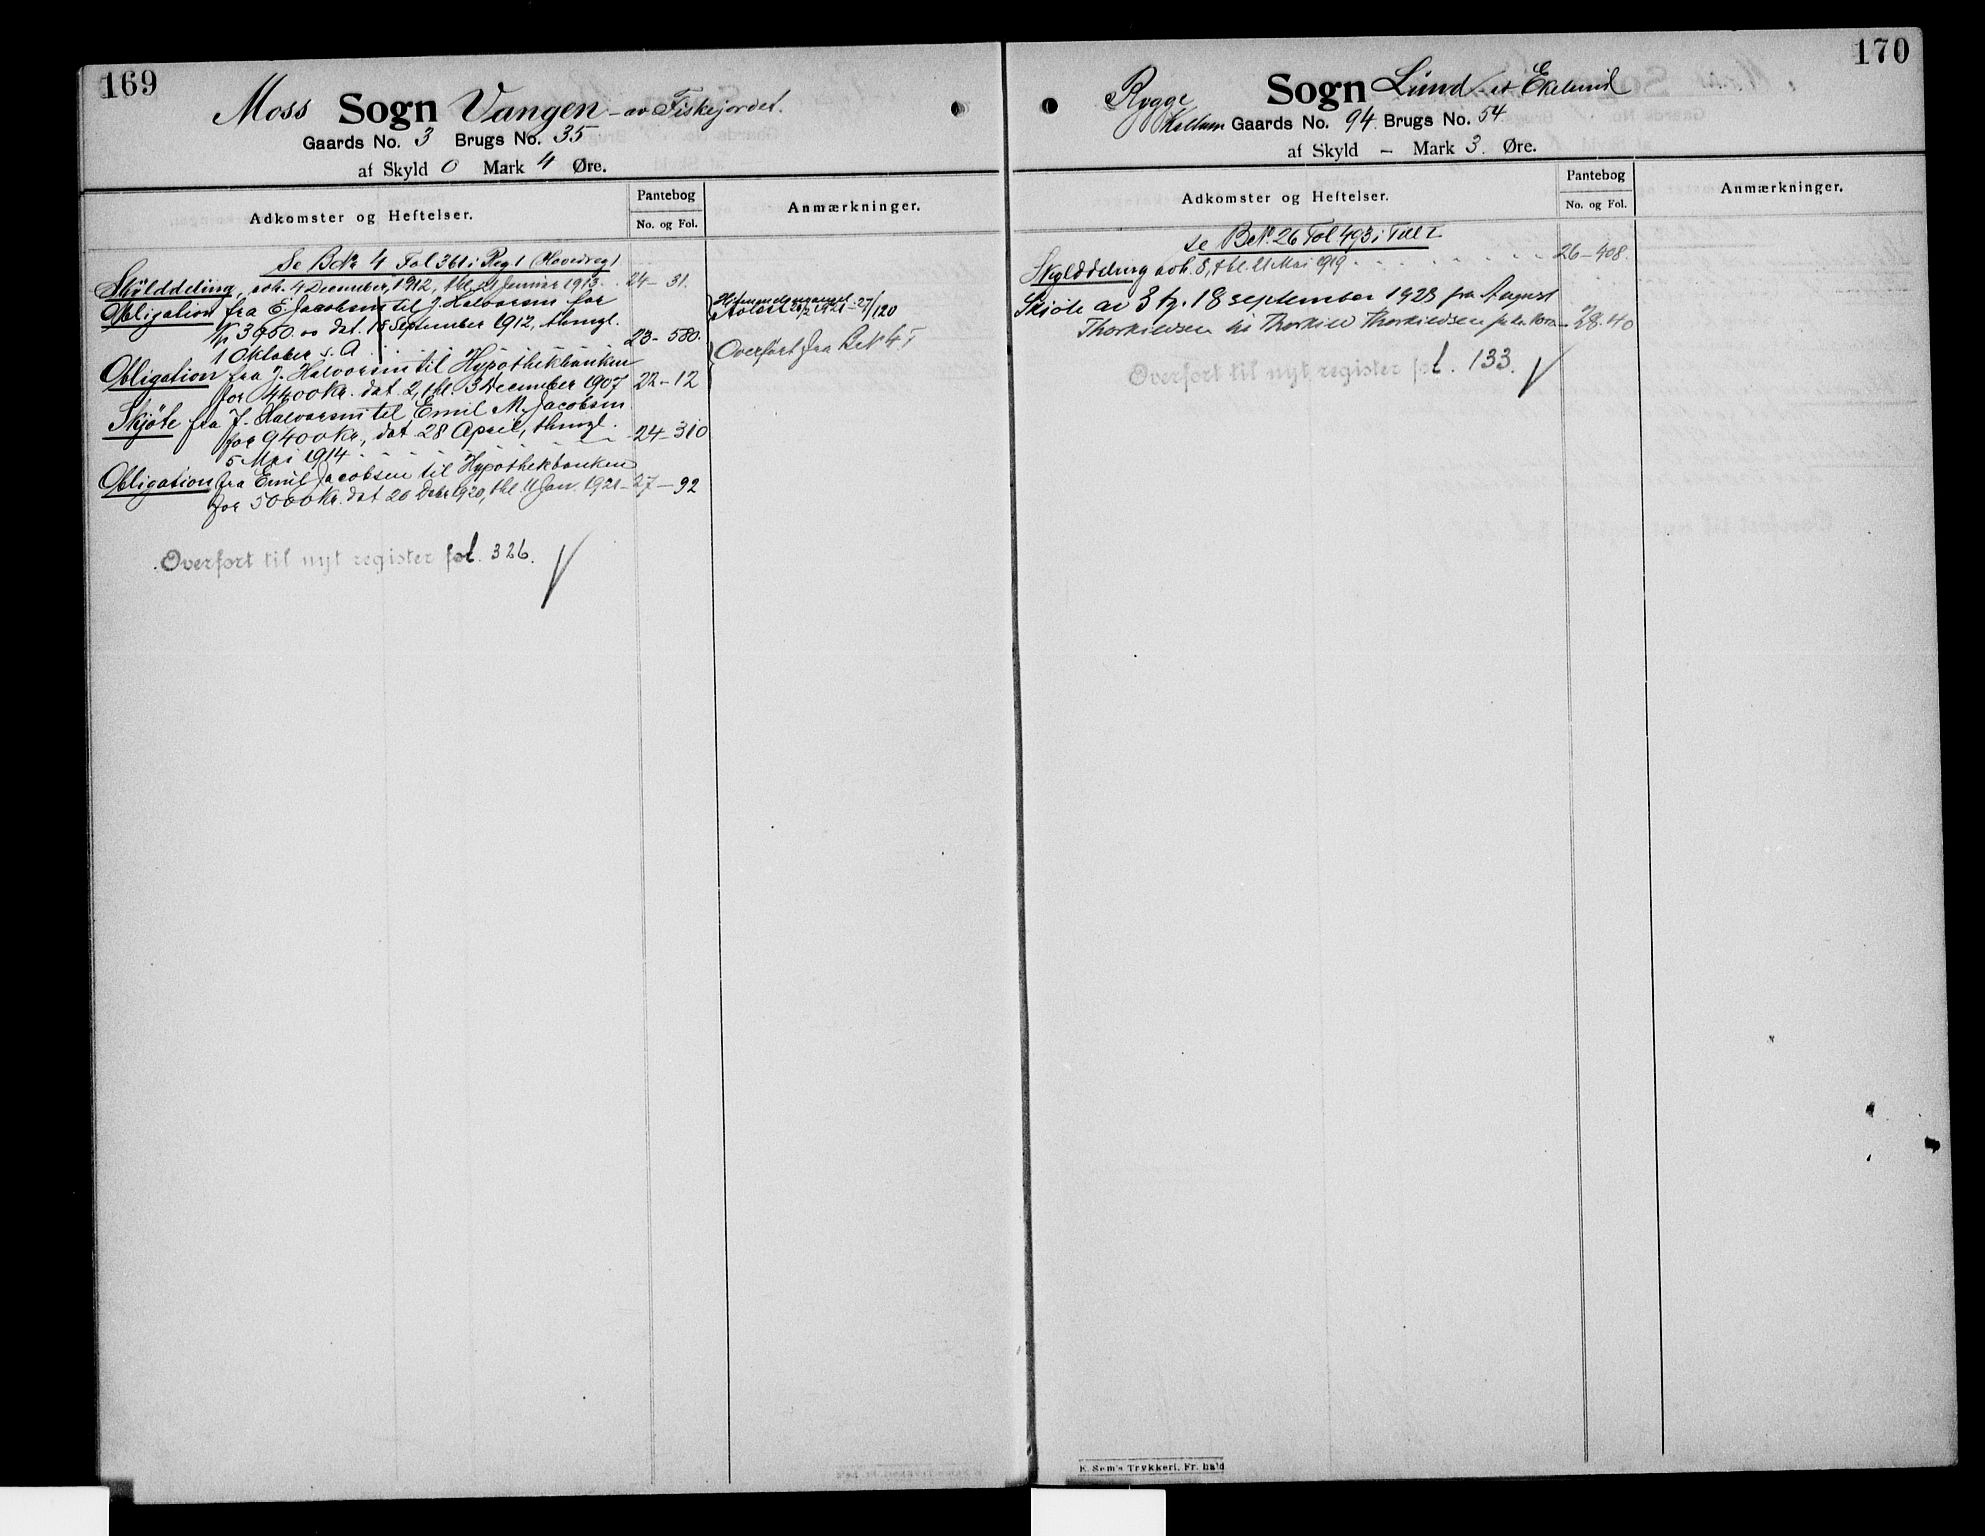 169
Moss Sogn Vangen - av Fiskejordet.
Gaards No. 3 Brugs No. 35
af Skyld 0 Mark 4 Øre.
Adkomster og Heftelser.
Pantebog
No. og Fol.
Anmærkninger.
Se BNr 4 Fol 361 i Reg 1 (Hovedreg)
Skylddeling, avh. 4 December, 1912, thl. 21 Januar 1913. 24-31.
Obligation fra E. Jacobsen til J. Halvorsen for
Kr 3950.00 dat. 18 September 1912, thingl.
1 Oktober s. A. 23-580.
Aflöst 27/120
Obligation fra J. Halvorsen til Hypothekbanken
for 4400 Kr. dat. 2, thl. 3 December 1907 22-12
Overført fra BrN 4 I
Skjöte fra J. Halvorsen til Emil M. Jacobsen
for 9400 Kr., dat. 28 April, thingl.
5 Mai 1914 24-310
Obligation fra Emil Jacobsen til Hypothekbanken
for 5000 Kr. dat 20 Decbr 1920, thl. 11 Jan. 1921 - 27-92
Overført til nyt register fol. 326.
170
Rygge Sogn Lund et Ekelund
Gaards No. 94. Brugs No. 54
af Skyld - Mark 3. Øre.
Adkomster og Heftelser.
Pantebog
No. og Fol.
Anmærkninger.
se BrN. 26 Fol 493 i Till I
Skylddeling avh. 8, thl. 21 Mai 1919 26-408.
Skjöte av 3 tg. 18 september 1923 fra August
Thorkildsen til Thorkild Thorkildsen 28-40
Overført til nyt register fol. 133.
E. Sem's Trykkeri, Fr. hald